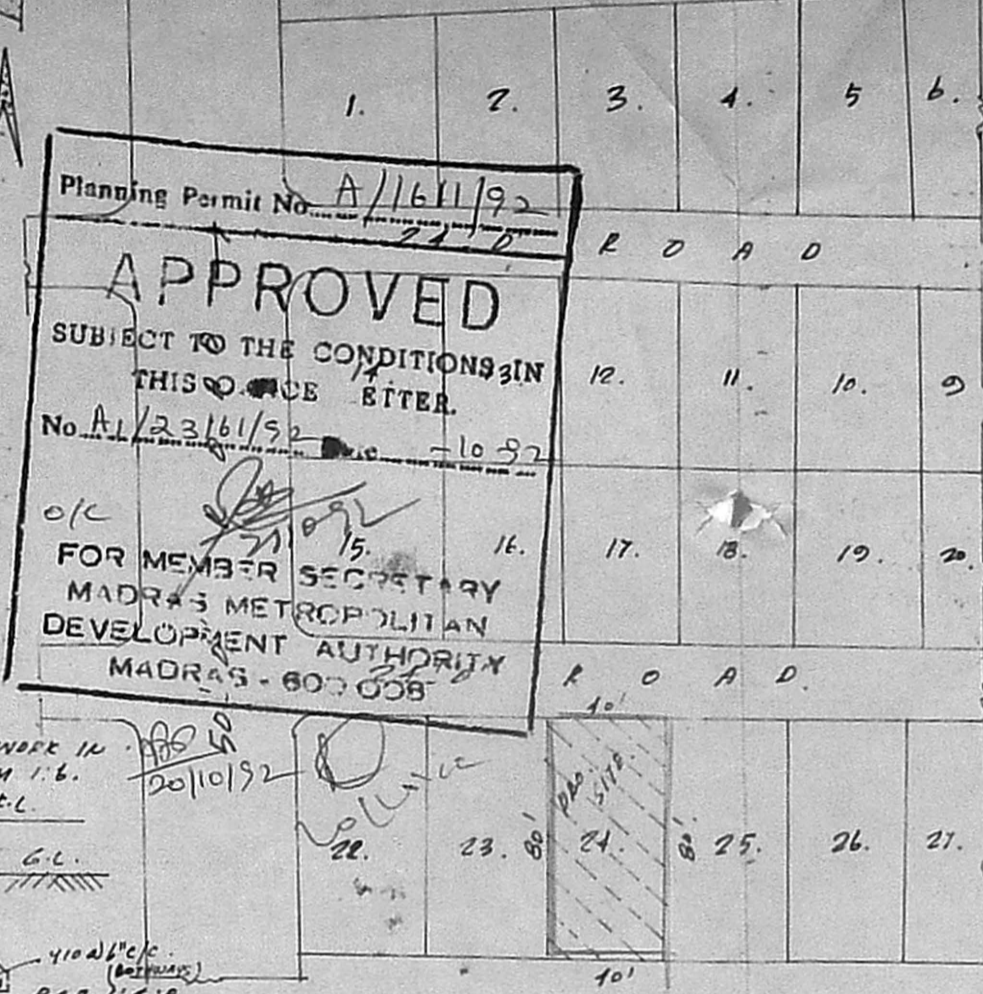 1. 2. 3. 4. 5 6.
Planning Permit No. A/1611/92
ROAD
APPROVED
SUBJECT TO THE CONDITIONS IN
THIS ETTER.
12. 11. 10. 9
No. A1/23161/92 -10-92
O/C
15. 16. 17. 18. 19. 20.
FOR MEMBER SECRETARY
MADRAS METROPOLITAN
DEVELOPMENT AUTHORITY
MADRAS - 600 008
ROAD.
40'
WORK IN
1:6.
20/10/92
PRO SITE.
G.L.
22. 23. 80' 24. 80' 25. 26. 27.
40'
6"c/c.
(BOTHWAYS)